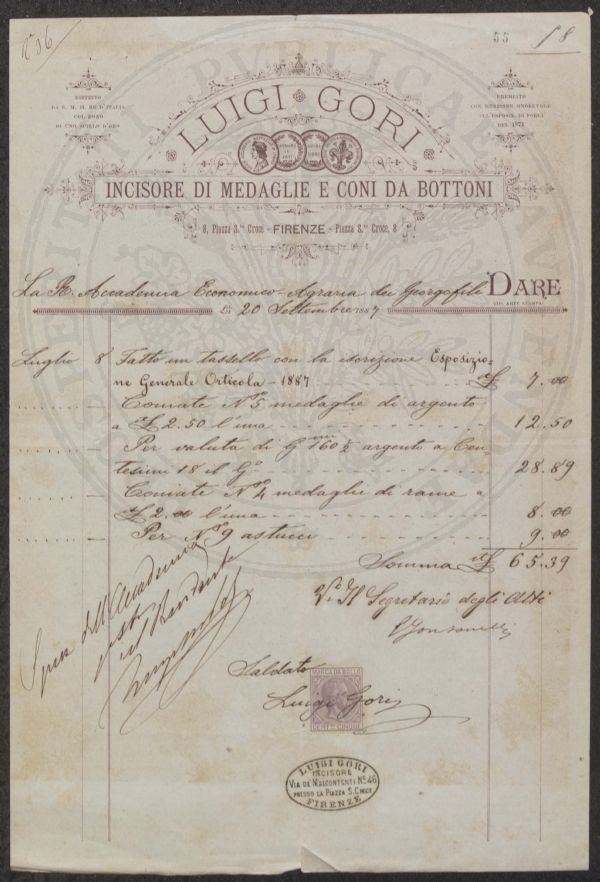 N° 36
55
18
DISTINTO
DA S. M. IL RE D'ITALIA
COL DONO
DI UNO SPILLO D'ORO
PREMIATO
CON MENZIONE ONOREVOLE
ALL'ESPOSIZ. DI FORLÌ
DEL 1871
LUIGI GORI
INCISORE DI MEDAGLIE E CONI DA BOTTONI
8, Piazza S.ta Croce - FIRENZE - Piazza S.ta Croce, 8
La R. Accademia Economico-Agraria dei Georgofili DARE
Li 20 Settembre 1887
Luglio 8 Fatto un tassello con la iscrizione Esposizio-
ne Generale Orticola - 1887 £ 7.00
Coniate N° 5 medaglie di argento
a £ 2.50 l'una 12.50
Per valuta di G 160 ½ argento a Cen-
tesimi 18 il G° 28.89
Coniate N° 4 medaglie di rame a
£ 2.00 l'una 8.00
Per N° 9 astucci 9.00
Somma £ 65.39
V° Il Segretario degli Atti
Spese dell'Accademia
Saldato
MARCA DA BOLLO
Luigi Gori
CENT. CINQUE
LUIGI GORI
INCISORE
VIA DE' MALCONTENTI No. 46
PRESSO LA PIAZZA S. CROCE
FIRENZE